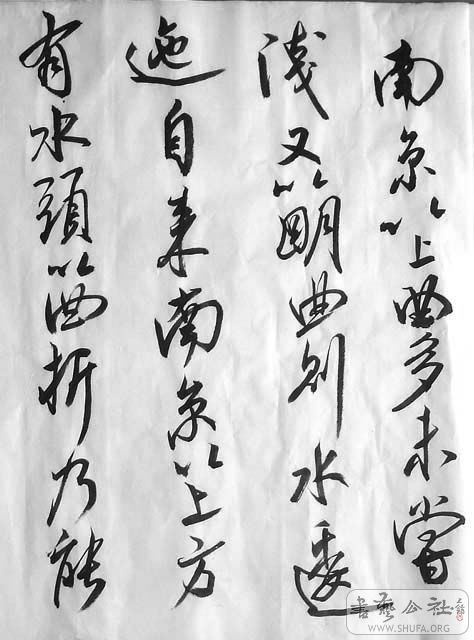 南京以上曲多未嘗
淺又以明曲則水逶
迤自来南京以上方
有水頭以曲折乃能
書藝公社
WWW.SHUFA.ORG